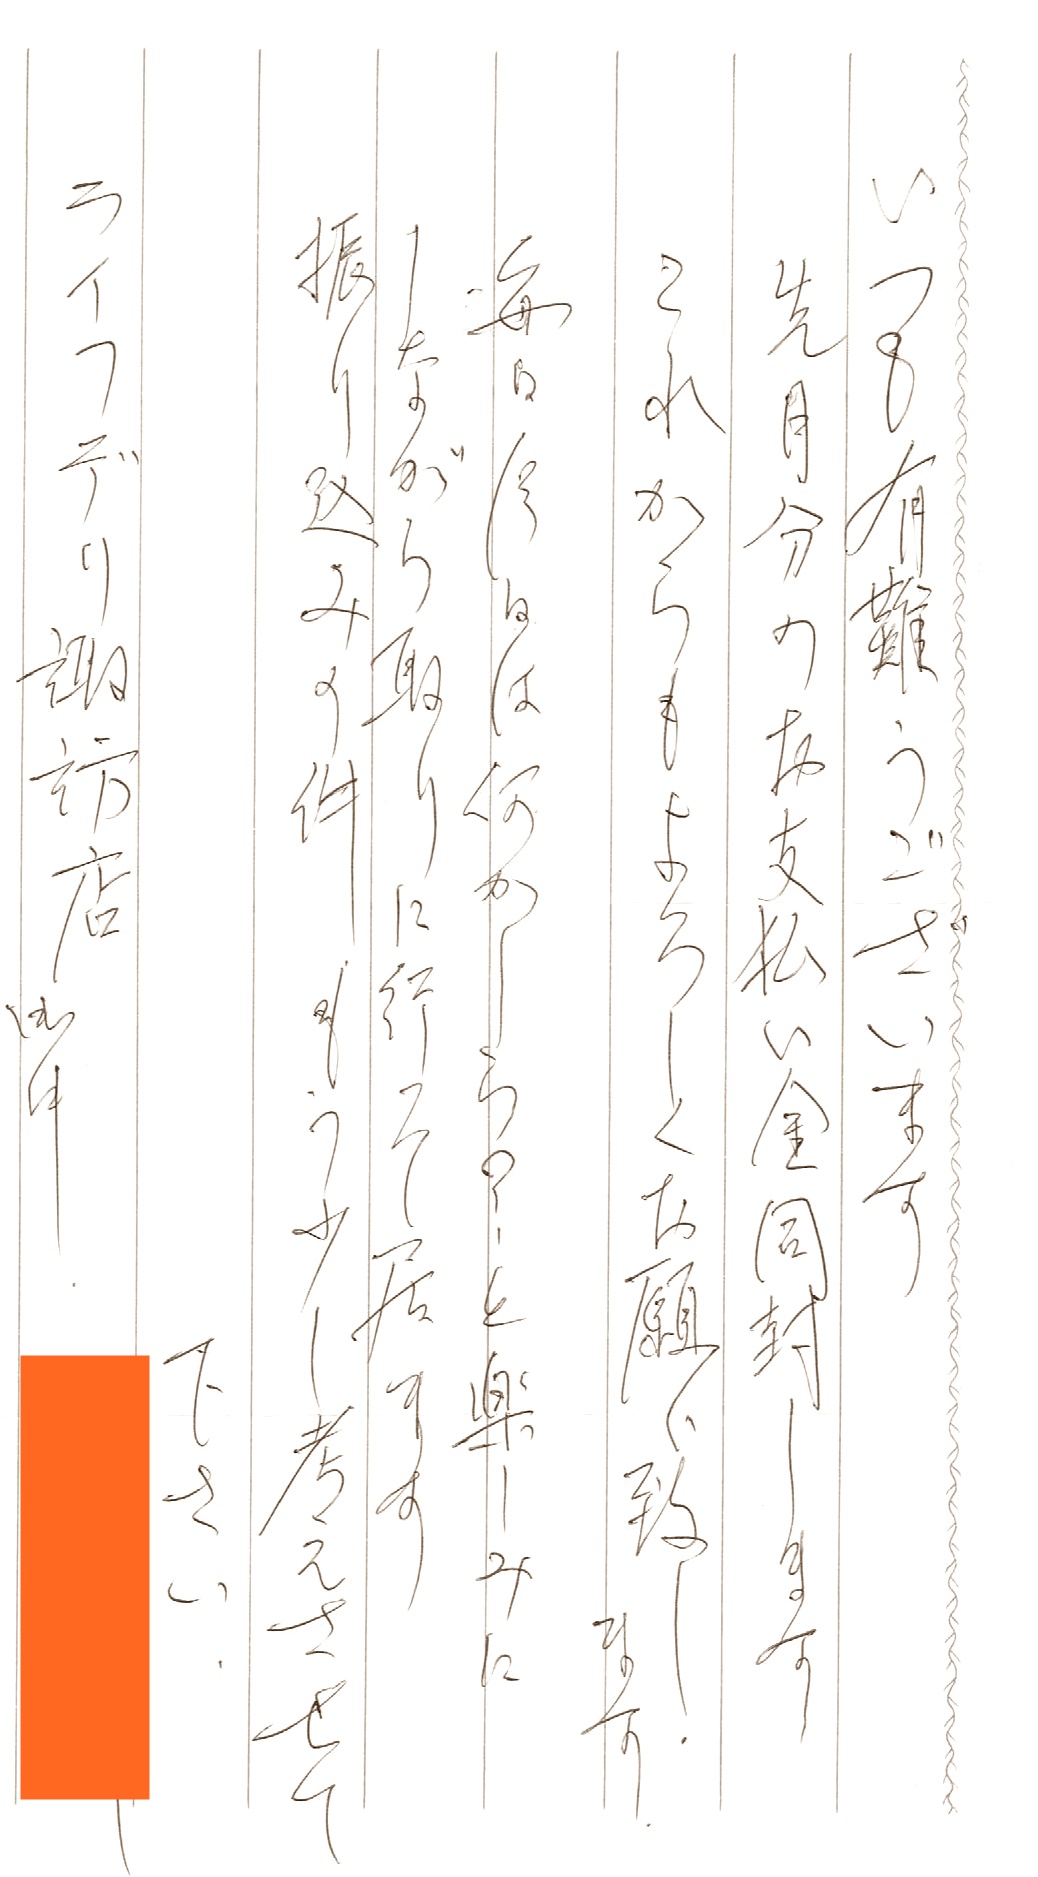 いつも有難うございます
先月分のお支払い金同封します
これからもよろしくお願い致し
ます.
毎日 日は何かしら と楽しみに
しながら取りに行って居ます
振り込みの件 もう少し考えさせて
下さい.
ライフデリ諏訪店 御中.